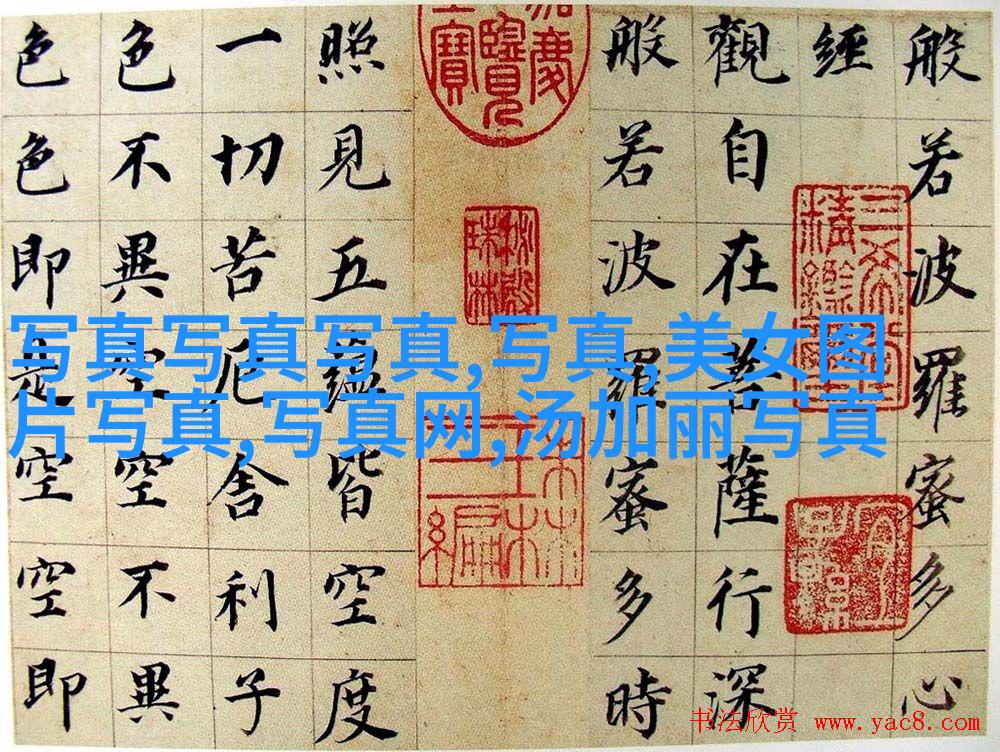 般若波羅蜜多心
經
觀自在菩薩行深
般若波羅蜜多時
照見五蘊皆空度
一切苦厄舍利子
色不異空空不異
色色即是空空即
秘殿珠林
三希堂精鑑璽
宜子孫
写真写真写真,写真,美女图
片写真,写真网,汤加丽写真
书法欣赏 www.yac8.com